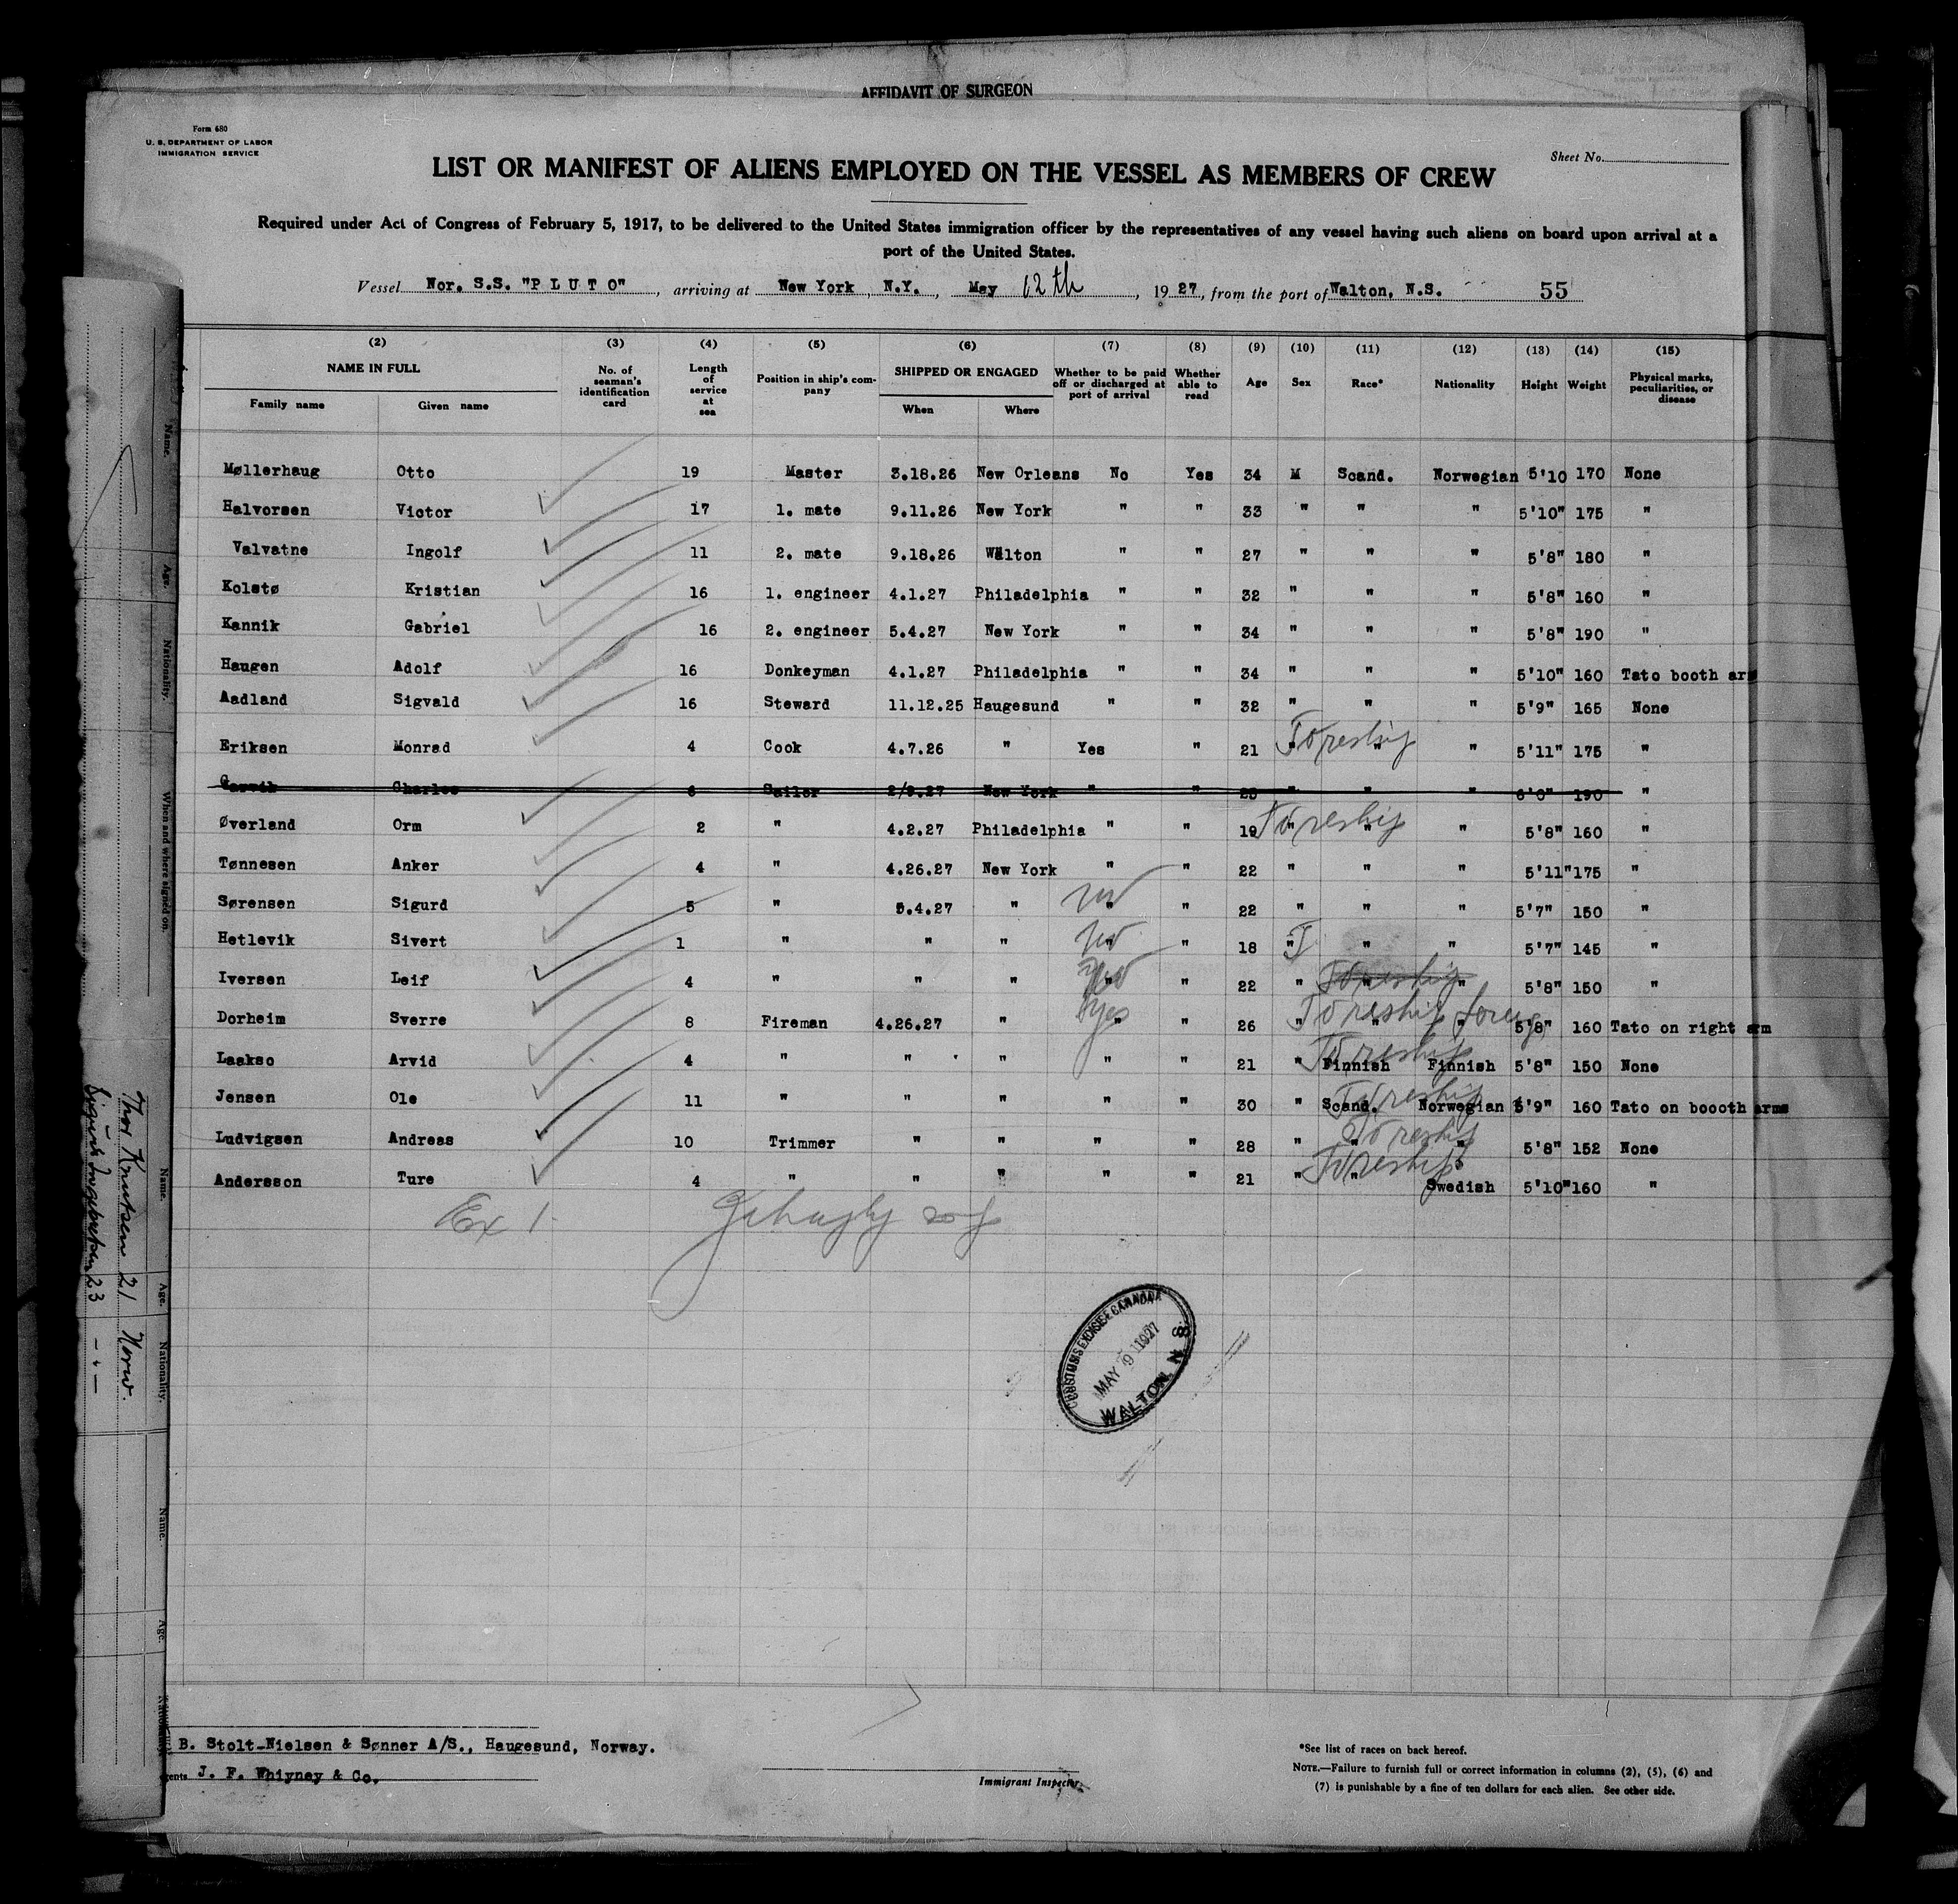 AFFIDAVIT OF SURGEON
Form 680
U. S. DEPARTMENT OF LABOR
IMMIGRATION SERVICE
Sheet No.
LIST OR MANIFEST OF ALIENS EMPLOYED ON THE VESSEL AS MEMBERS OF CREW
Required under Act of Congress of February 5, 1917, to be delivered to the United States immigration officer by the representatives of any vessel having such aliens on board upon arrival at a
port of the United States.
Vessel Nor. S.S. "P L U T O", arriving at New York, N.Y., May 12th, 1927, from the port of Walton, N.S. 55
(2) (3) (4) (5) (6) (7) (8) (9) (10) (11) (12) (13) (14) (15)
NAME IN FULL No. of seaman's identification card Length of service at sea Position in ship's company SHIPPED OR ENGAGED Whether to be paid off or discharged at port of arrival Whether able to read Age Sex Race* Nationality Height Weight Physical marks, peculiarities, or disease
Family name Given name When Where
Møllerhaug Otto 19 Master 3.18.26 New Orleans No Yes 34 M Scand. Norwegian 5'10 170 None
Halvorsen Victor 17 1. mate 9.11.26 New York " " 33 " " " 5'10" 175 "
Valvatne Ingolf 11 2. mate 9.18.26 Walton " " 27 " " " 5'8" 180 "
Kolstø Kristian 16 1. engineer 4.1.27 Philadelphia " " 32 " " " 5'8" 160 "
Kannik Gabriel 16 2. engineer 5.4.27 New York " " 34 " " " 5'8" 190 "
Haugen Adolf 16 Donkeyman 4.1.27 Philadelphia " " 34 " " " 5'10" 160 Tato booth arm
Aadland Sigvald 16 Steward 11.12.25 Haugesund " " 32 " " " 5'9" 165 None
Eriksen Monrad 4 Cook 4.7.26 " Yes " 21 " " " 5'11" 175 " To reship
Charles 6 Sailor New York " " " " " 6'0" 190 "
Øverland Orm 2 " 4.2.27 Philadelphia " " 19 " " " 5'8" 160 " To reship
Tønnesen Anker 4 " 4.26.27 New York " " 22 " " " 5'11" 175 "
Sørensen Sigurd 5 " 5.4.27 " " no " 22 " " " 5'7" 150 "
Hetlevik Sivert 1 " " " " no " 18 " " " 5'7" 145 "
Iversen Leif 4 " " " " no " 22 " " " 5'8" 150 " To reship
Dorheim Sverre 8 Fireman 4.26.27 " " yes " 26 " " " 5'8" 160 Tato on right arm To reship foreig
Laakso Arvid 4 " " " " " 21 " Finnish Finnish 5'8" 150 None To reship
Jensen Ole 11 " " " " " 30 " Scand. Norwegian 5'9" 160 Tato on boooth arms To reship
Ludvigsen Andreas 10 Trimmer " " " " 28 " " " 5'8" 152 None To reship
Andersson Ture 4 " " " " " 21 " " Swedish 5'10" 160 " To reship
Ex 1.
CUSTOMS EXCISE CANADA
MAY 9 1927
WALTON N S
B. Stolt-Nielsen & Sønner A/S., Haugesund, Norway.
gents J. F. Whiyney & Co.
Immigrant Inspector
*See list of races on back hereof.
NOTE.—Failure to furnish full or correct information in columns (2), (5), (6) and
(7) is punishable by a fine of ten dollars for each alien. See other side.
Name. Age. Nationality. When and where signed on.
Name. Age. Nationality.
Thor Knutsen 21 Norw.
23 - " -
Name. Age. Nationality.